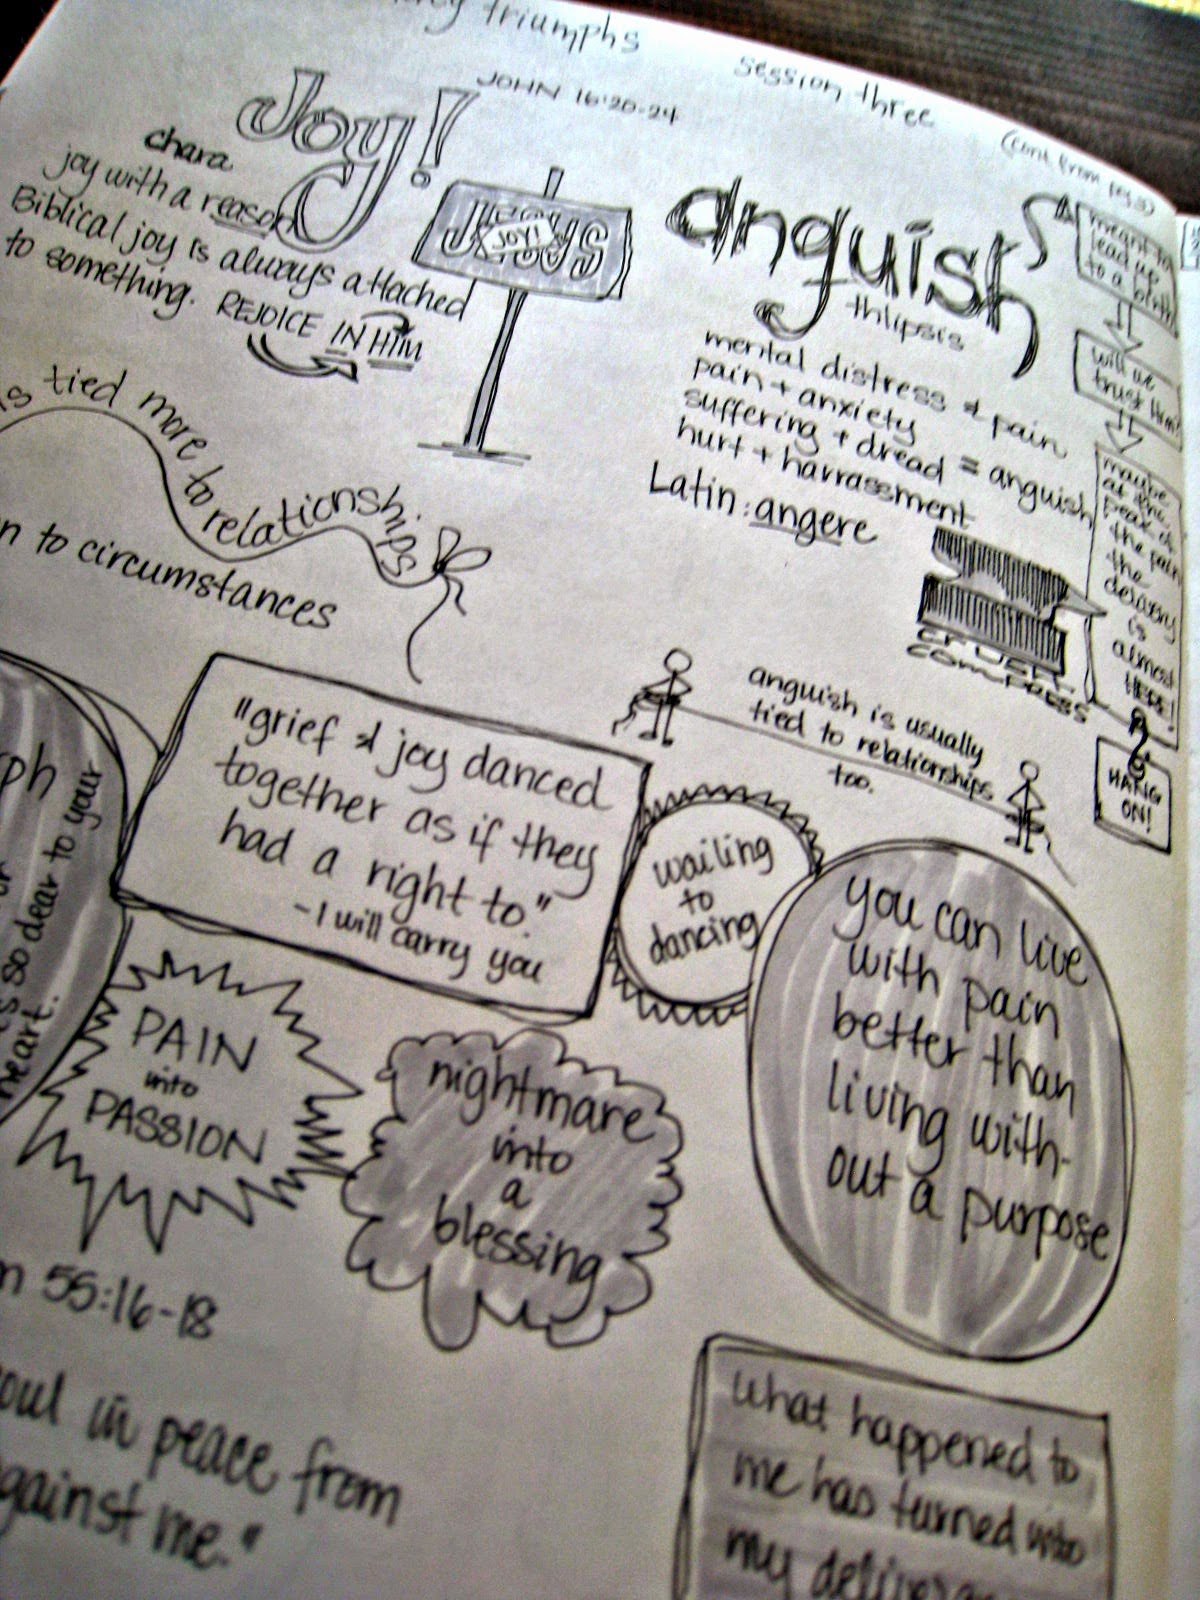 triumphs
session three
(cont from pg 3)
JOHN 16:20-24
Joy!
chara
joy with a reason
Biblical joy is always attached
to something. REJOICE IN HIM
JESUS
JOY!
anguish
thlipsis
mental distress & pain
pain + anxiety
suffering + dread = anguish
hurt + harrassment
Latin: angere
CRUSH
COMPRESS
meant to
lead up
to a birth
will we
trust Him?
maybe
at the
peak of
the pain
the
delivery
is
almost
HERE!
HANG
ON!
is tied more to relationships
to circumstances
anguish is usually
tied to relationships
too.
"grief & joy danced
together as if they
had a right to."
- I will carry you
wailing
to
dancing
you can live
with pain
better than
living with-
out a purpose
so dear to your
heart.
PAIN
into
PASSION
nightmare
into
a
blessing
55:16-18
in peace from
me."
what happened to
me has turned into
my